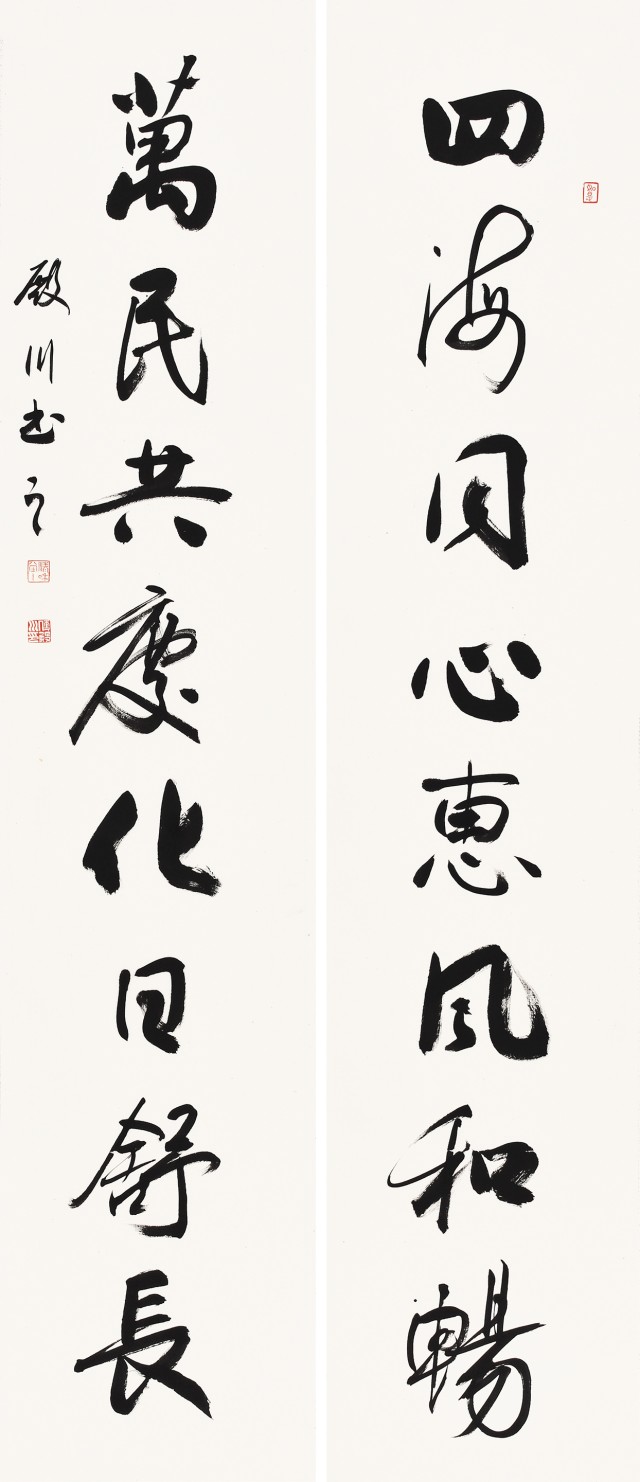 四海同心惠風和暢
萬民共慶化日舒長
殿川书之